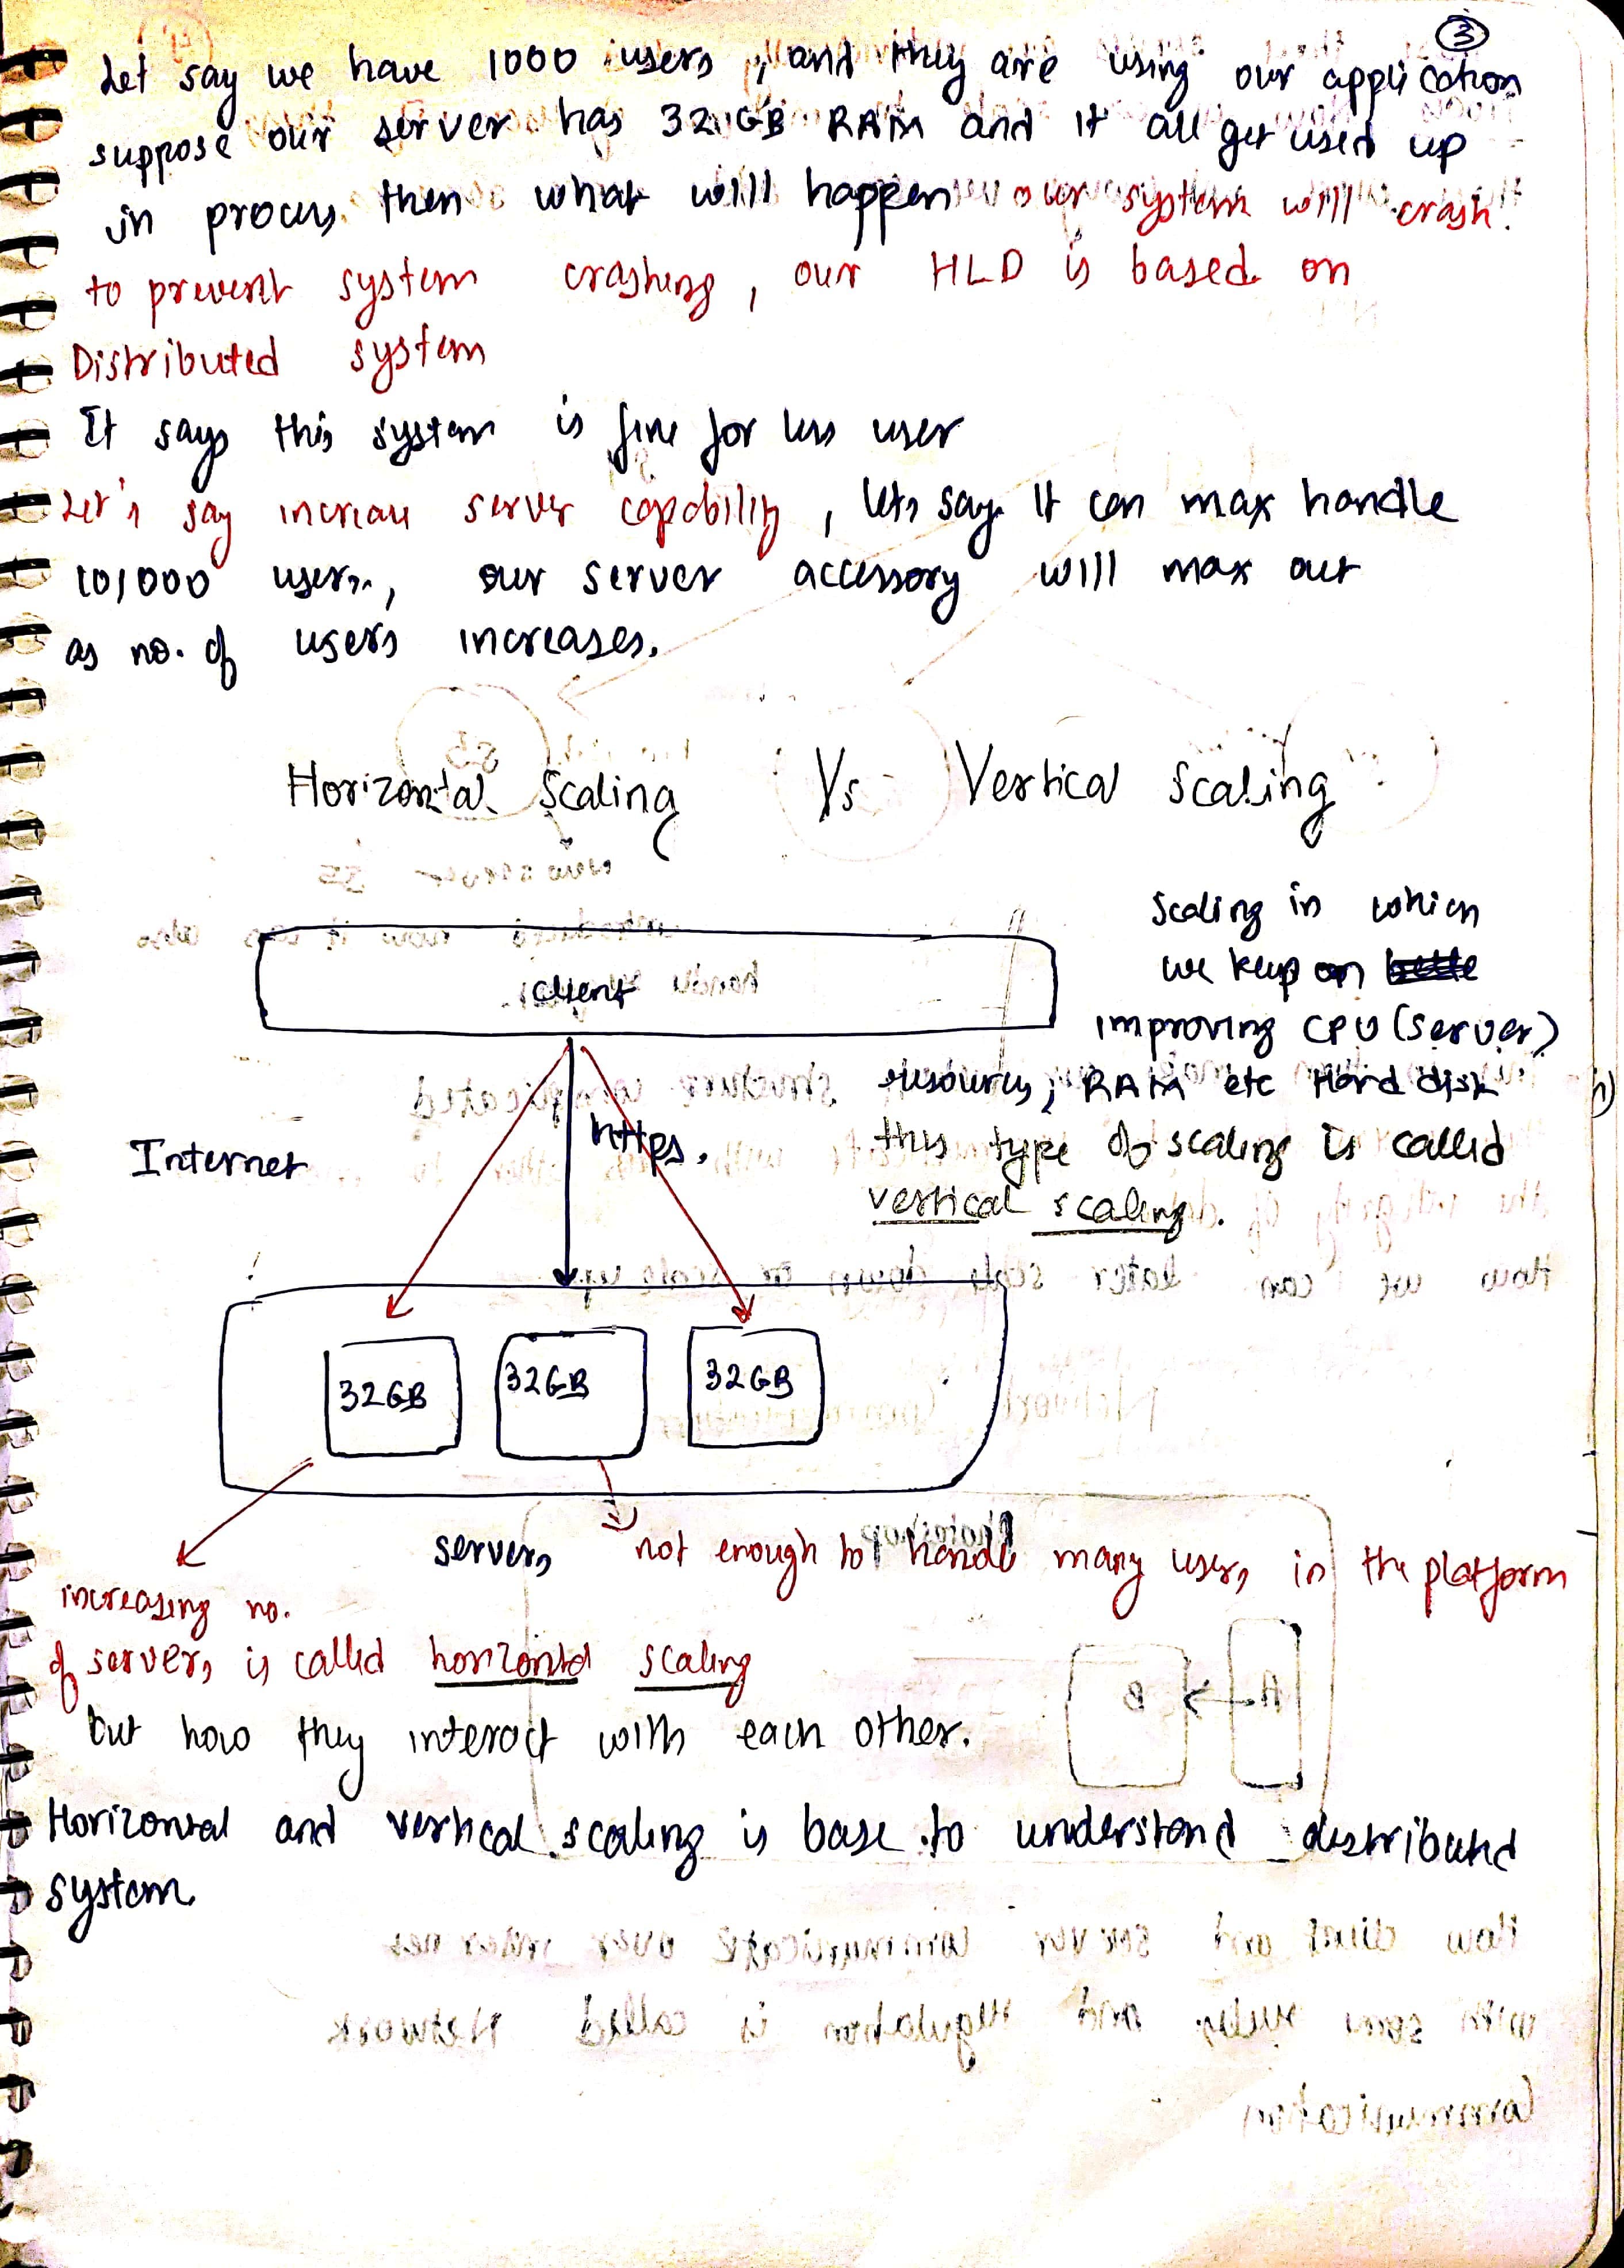 3
Let say we have 1000 users, and they are using our application
suppose our server has 32 GB RAM and it all get used up
in process, then what will happen our system will crash.
to prevent system crashing, our HLD is based on
Distributed system
It says this system is fine for less user
Let's say increase server capability, lets say It can max handle
10,000 users, our server accessory will max out
as no. of users increases.
Horizontal Scaling Vs Vertical Scaling
Scaling in which
we keep on
improving CPU (server)
resources, RAM etc Hard disk
this type of scaling is called
vertical scaling.
client
Internet
https.
32GB 32GB 32GB
servers
not enough to handle many users in the platform
increasing no.
of servers is called horizontal scaling
but how they interact with each other.
Horizontal and vertical scaling is base to understand distributed
system